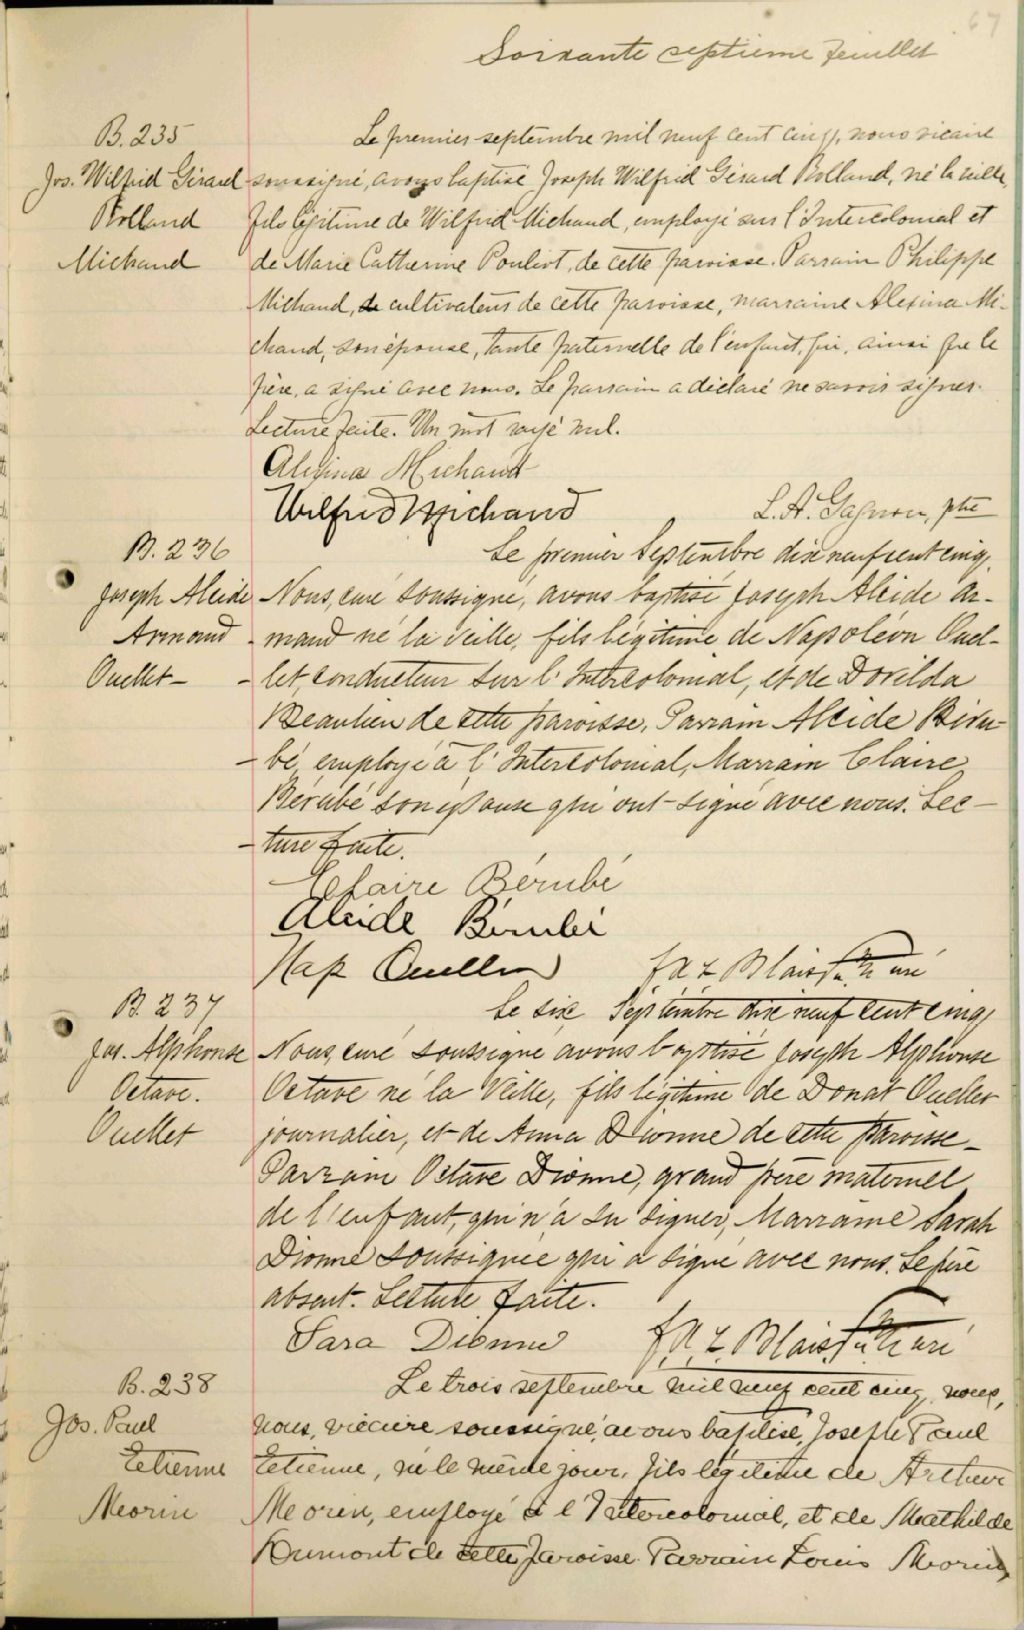 67
Soixante septième feuillet
B. 235
Jos. Wilfrid Gérard
Rolland
Michaud
Le premier septembre mil neuf cent cinq, nous vicaire
soussigné, avons baptisé Joseph Wilfrid Gérard Rolland, né la veille,
fils légitime de Wilfrid Michaud, employé sur l'Intercolonial et
de Marie Catherine Pouliot, de cette paroisse. Parrain Philippe
Michaud, de cultivateur de cette paroisse, marraine Alexina Mi-
chaud, son épouse, tante paternelle de l'enfant, qui, ainsi que le
père, a signé avec nous. Le parrain a déclaré ne savoir signer.
Lecture faite. Un mot rayé nul.
Alexina Michaud
Wilfrid Michaud L. A. Gagnon, ptre
B. 236
Joseph Alcide
Armand
Ouellet -
Le premier Septembre dix neuf cent cinq,
Nous, curé soussigné, avons baptisé Joseph Alcide Ar-
mand né la veille, fils légitime de Napoléon Ouel-
- let, conducteur sur l'Intercolonial, et de Dorilda
Beaulieu de cette paroisse, Parrain Alcide Béru-
- bé, employé à l'Intercolonial, Marrain Claire
Bérubé son épouse qui ont signé avec nous. Lec -
- ture faite.
Claire Bérubé
Alcide Bérubé
Nap Ouellet Blais Ptr curé
B. 237
Jos. Alphonse
Octave.
Ouellet
Le six Septembre dix neuf cent cinq,
Nous, curé soussigné avons baptisé Joseph Alphonse
Octave né la Veille, fils légitime de Donat Ouellet
journalier, et de Anna Dionne de cette paroisse -
Parrain Octave Dionne, grand père maternel
de l'enfant, qui n'a su signer, Marraine Sarah
Dionne soussignée qui a signé avec nous. Le père
absent. Lecture faite.
Sara Dionne Blais Ptr curé
B. 238
Jos. Paul
Etienne
Morin
Le trois septembre mil neuf cent cinq, nous,
nous, vicaire soussigné, avons baptisé, Joseph Paul
Etienne, né le même jour, fils légitime de Arthur
Morin, employé à l'Intercolonial, et de Mathilde
Dumont de cette paroisse. Parrain Louis Morin,